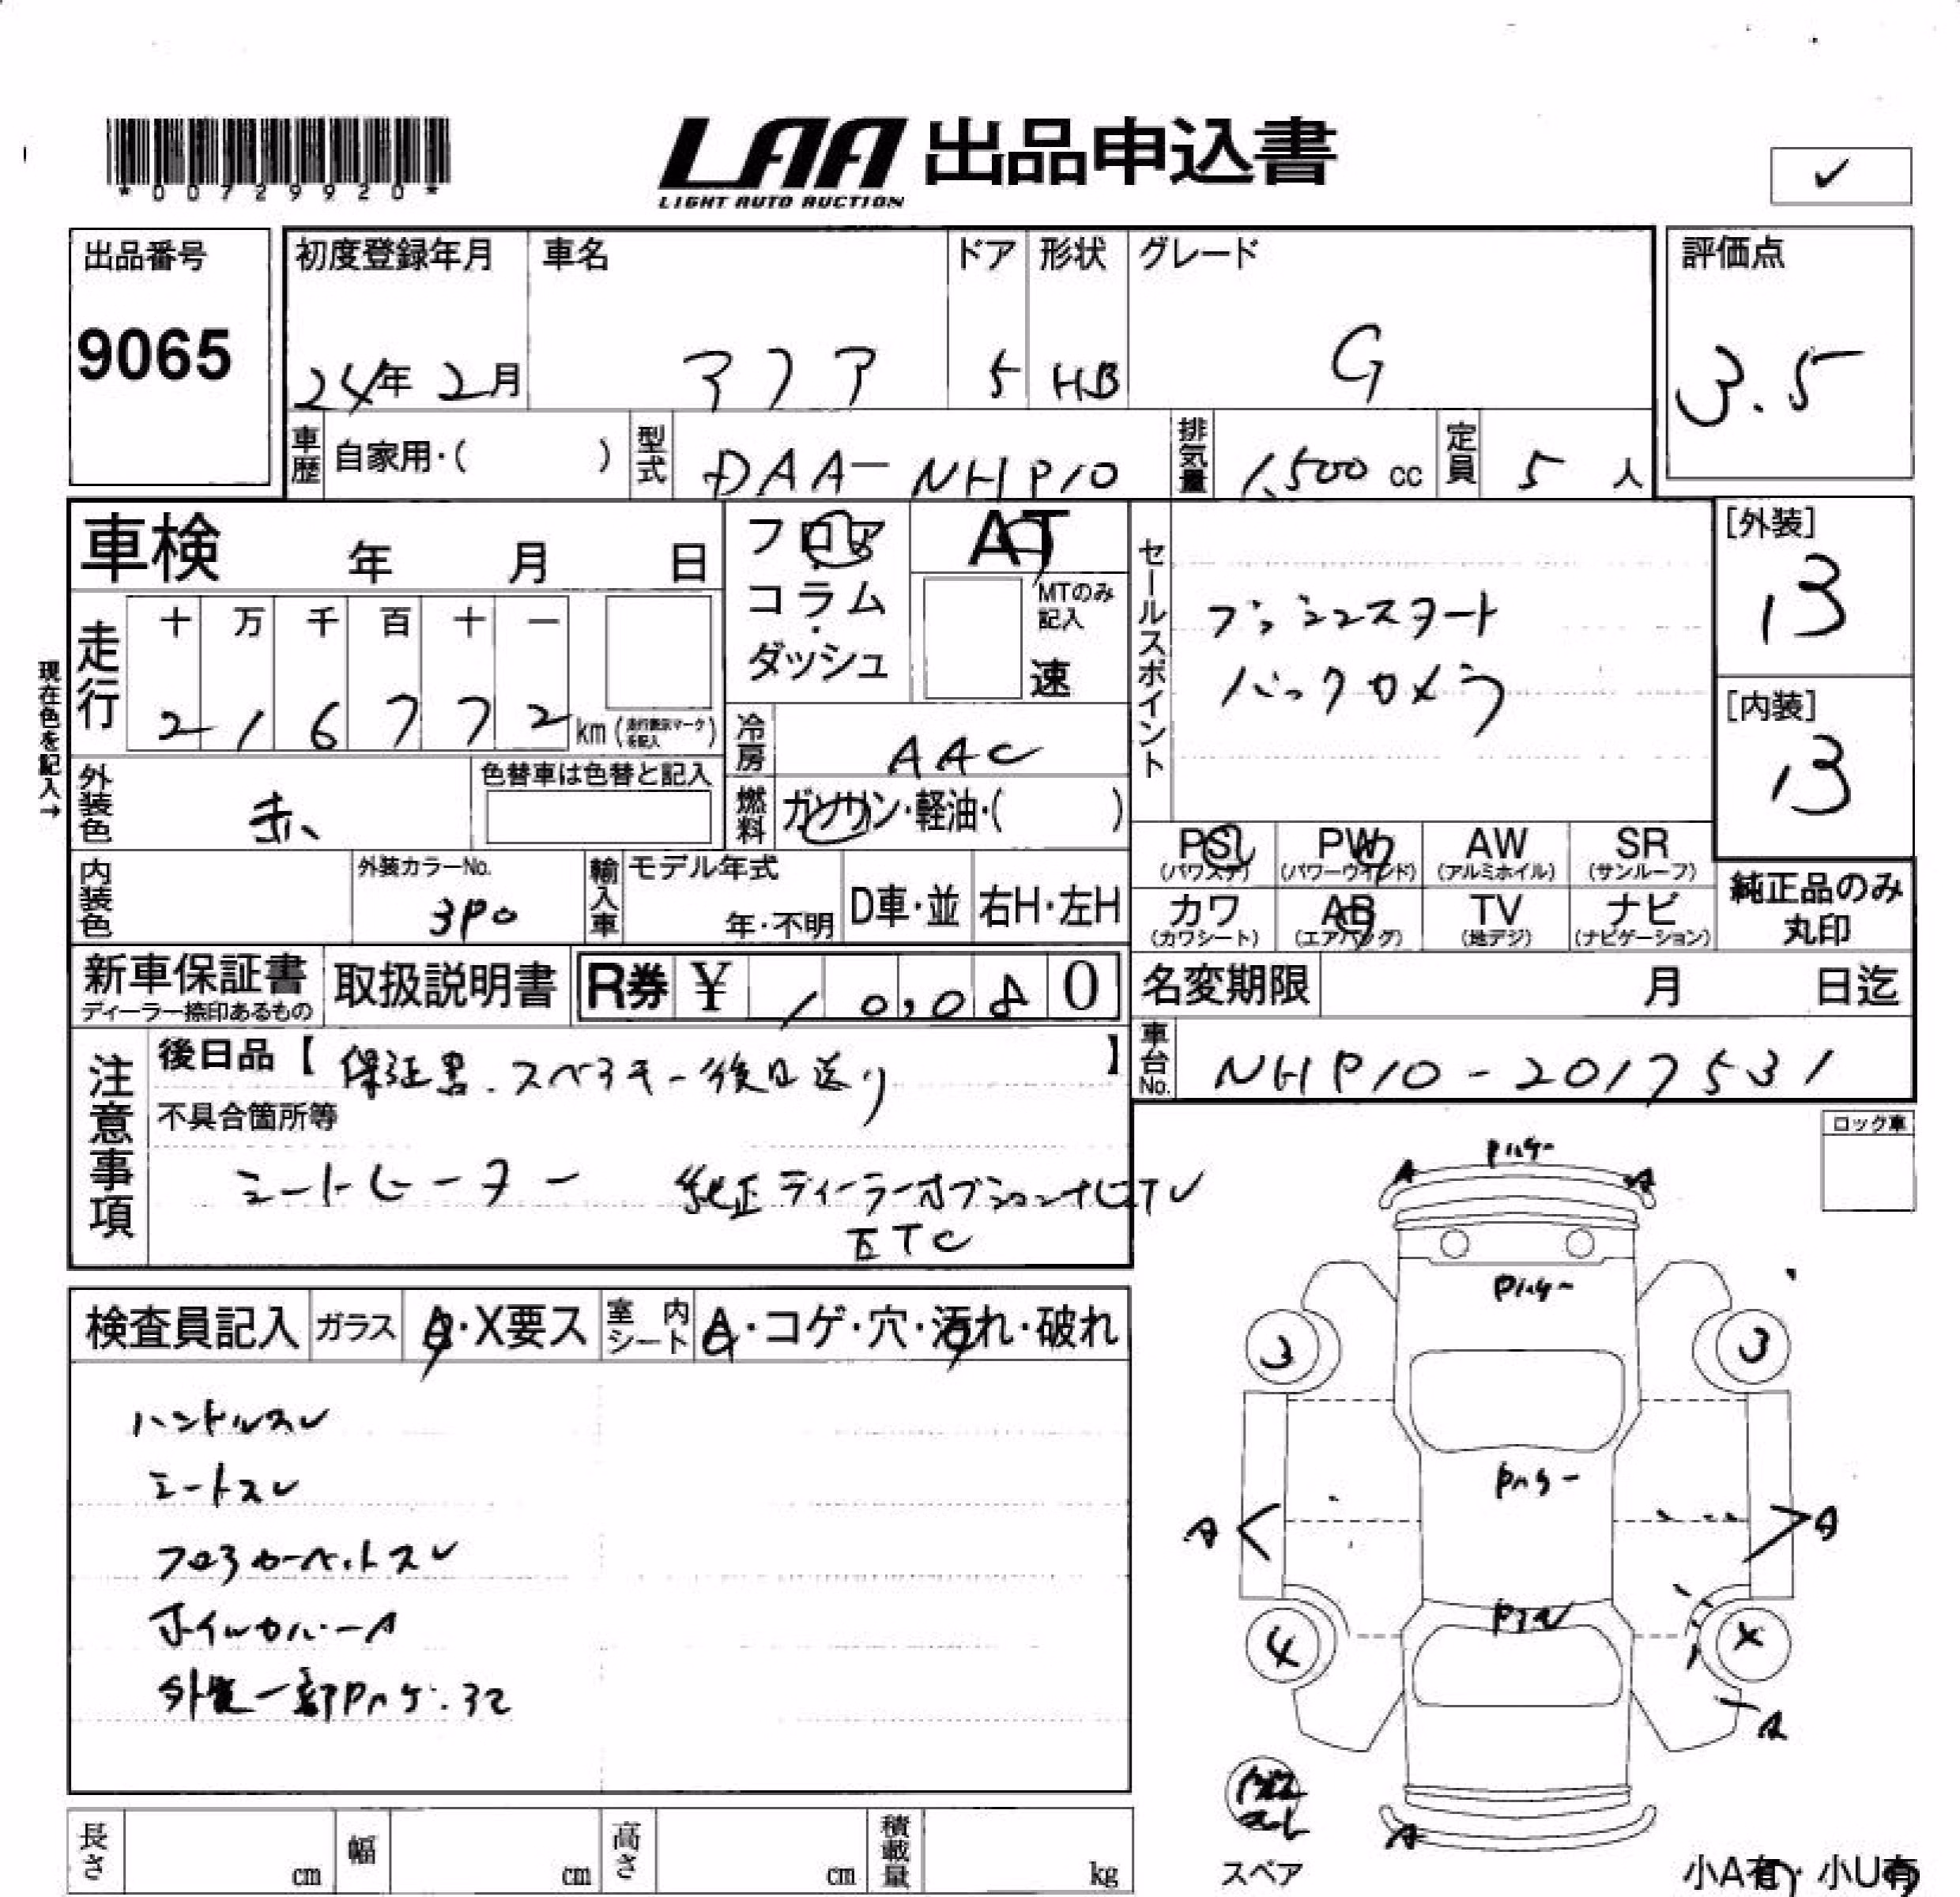 *00729920*
LAA 出品申込書
LIGHT AUTO AUCTION
✓
出品番号
9065
初度登録年月
24年 2月
車名
アクア
ドア
5
形状
HB
グレード
G
評価点
3.5
車歴 自家用・( )
型式 DAA-NHP10
排気量 1,500 cc
定員 5 人
車検 年 月 日
フロア・コラム・ダッシュ
AT
MTのみ記入
速
セールスポイント
プッシュスタート
バックカメラ
[外装]
13
[内装]
13
現在色を記入→
走行
十 万 千 百 十 一
2 1 6 7 7 2 km (走行表示マークを記入)
冷房 AAC
外装色 赤
色替車は色替と記入
燃料 ガソリン・軽油・( )
内装色
外装カラーNo.
3P0
輸入車
モデル年式
年・不明
D車・並
右H・左H
PS (パワステ)
PW (パワーウインド)
AW (アルミホイル)
SR (サンルーフ)
カワ (カワシート)
AB (エアバッグ)
TV (地デジ)
ナビ (ナビゲーション)
純正品のみ丸印
新車保証書
ディーラー捺印あるもの
取扱説明書
R券 ¥ 10,080
名変期限 月 日迄
車台No. NHP10-2017531
注意事項
後日品【保証書.スペアキー後日送り】
不具合箇所等
シートヒーター 純正ディーラーオプションナビTV
ETC
ロック車
検査員記入
ガラス A・X要ス
室内シート A・コゲ・穴・汚れ・破れ
ハンドルスレ
シートスレ
フロアカーペットスレ
ホイルカバーA
外装一部Pハゲ.
Pハゲー
A A
Pハゲー
3 3
Pハゲー
A A
4 X
A
A
スペア
小A有・小U有
長さ cm
幅 cm
高さ cm
積載量 kg